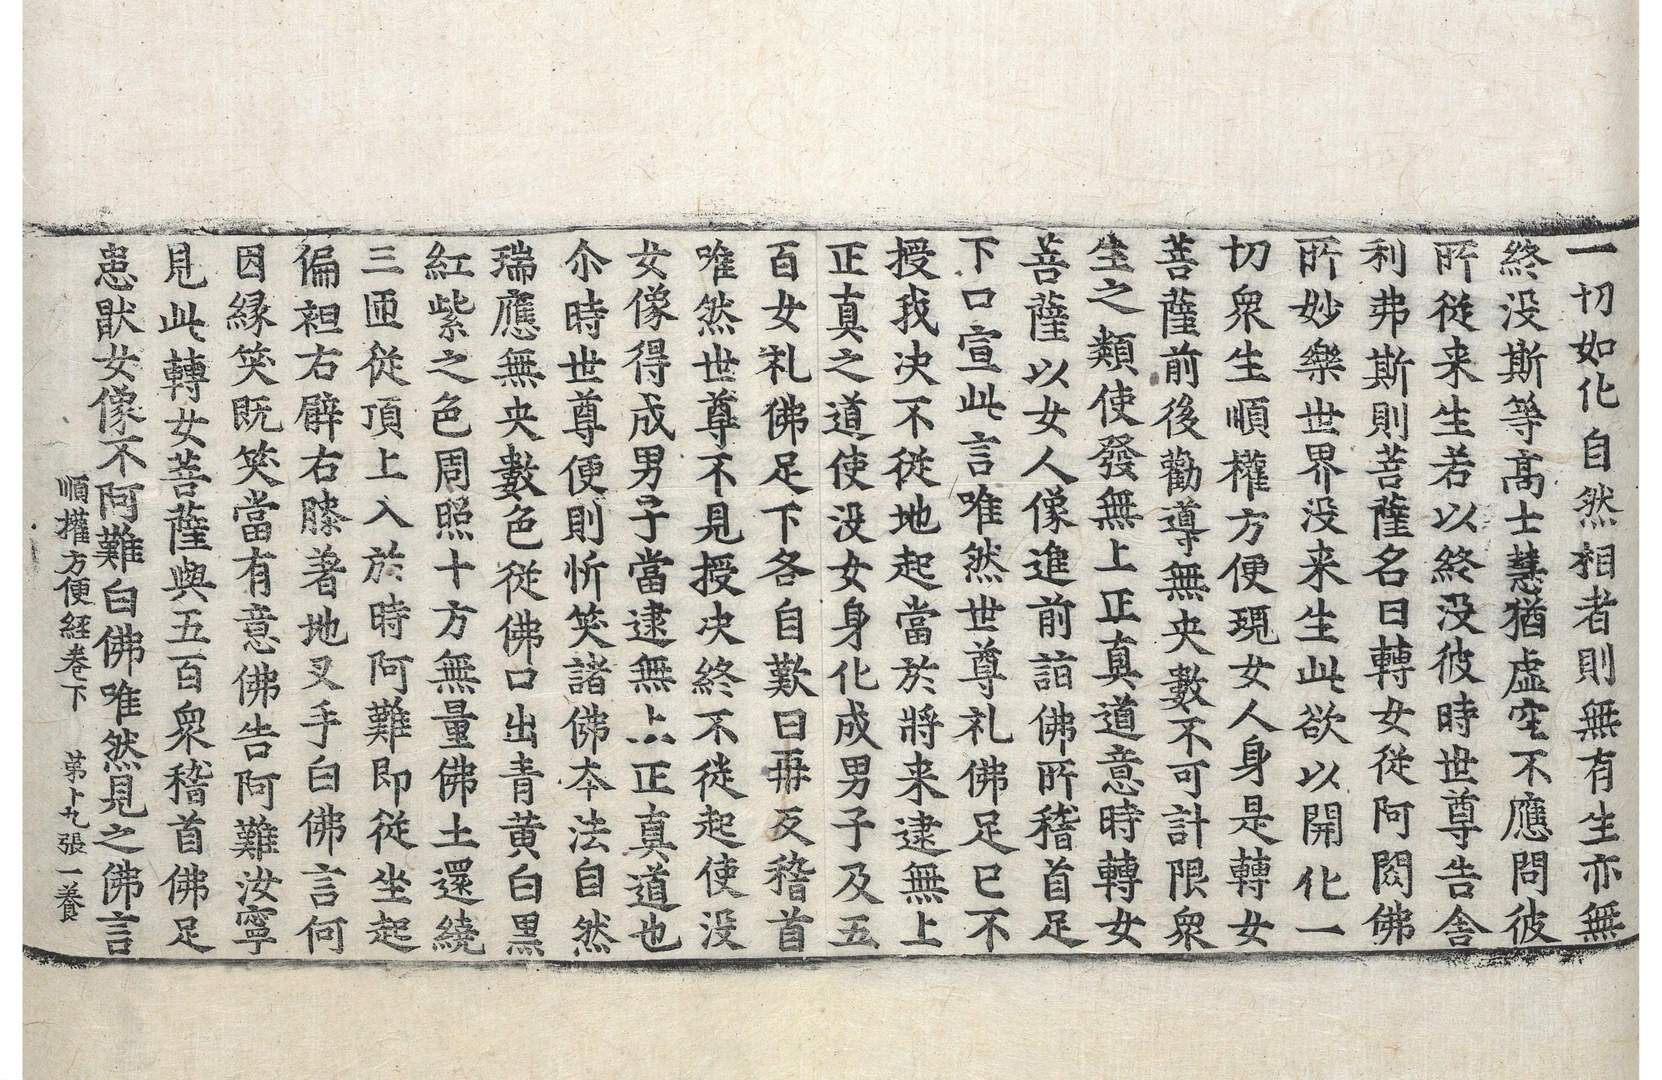 一切如化自然相者則無有生亦無
終没斯等髙士慧猶虛空不應問彼
所從来生若以終没彼時世尊告舎
利弗斯則菩薩名曰轉女從阿閦佛
所妙樂世界没来生此欲以開化一
切衆生順權方便現女人身是轉女
菩薩前後勸導無央數不可計限衆
生之類使發無上正真道意時轉女
菩薩以女人像進前詣佛所稽首足
下口宣此言唯然世尊礼佛足已不
授我决不從地起當於將来逮無上
正真之道使没女身化成男子及五
百女礼佛足下各自歎曰再反稽首
唯然世尊不見授决終不從起使没
女像得成男子當逮無上正真道也
尒時世尊便則忻笑諸佛夲法自然
瑞應無央數色從佛口出青黄白黒
紅紫之色周照十方無量佛土還繞
三匝從頂上入於時阿難即從坐起
偏袒右臂右膝著地叉手白佛言何
因緣笑既笑當有意佛告阿難汝寧
見此轉女菩薩與五百衆稽首佛足
患猒女像不阿難白佛唯然見之佛言
順權方便經卷下 第十九張 養